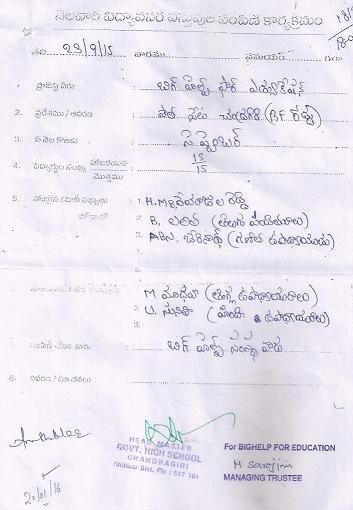 నెలవారి విద్యావసర వస్తువుల పంపిణీ కార్యక్రమం
తేది 23/9/15 వారము సమయము గంట
1. ప్రాజెక్టు పేరు బిగ్ హెల్ప్ ఫార్ ఎడ్యుకేషన్
2. ప్రదేశము / ఆవరణ చంద్రగిరి
3. ఏ నెల కొరకు సెప్టెంబర్
4. విద్యార్థుల సంఖ్య హాజరయిన 15
మొత్తము 15
5. హాజరైన కమిటీ సభ్యులు 1. H.M
2. B. లలిత (తెలుగు పండితురాలు)
3. (గణిత ఉపాధ్యాయుడు)
1. M మాధవి (ఆంగ్ల ఉపాధ్యాయురాలు)
2. U. సునీతా (హిందీ ఉపాధ్యాయురాలు)
3.
7. పంపిణీ చేసిన వారు బిగ్ హెల్ప్ సంస్థ వారు
8. వివరణ / సూచనలు
HEAD MASTER
GOVT. HIGH SCHOOL
CHANDRAGIRI
Chittoor Dist. Pin : 517 101
For BIGHELP FOR EDUCATION
M Sarojini
MANAGING TRUSTEE
20/01/16